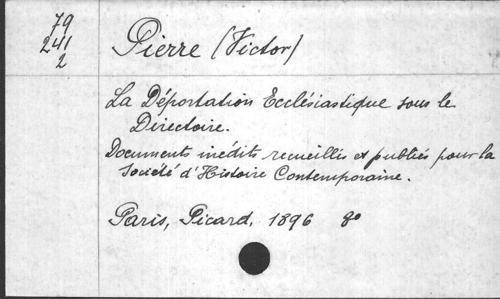 79
241
2
Pierre (Victor)
La Déportation Ecclésiastique sous le
Directoire.
Documents inédits recueillis et publiés pour la
Société d'Histoire Contemporaine.
Paris, Picard, 1896 8°